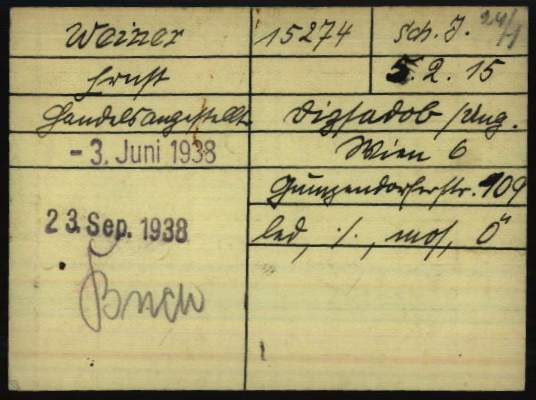 Weiner 15274 Sch. J. 24/1
Ernst 5. 2. 15
Handelsangestellt Dizsadob /Ung.
- 3. Juni 1938 Wien 6
Gumpendorferstr. 109
23. Sep. 1938 led, ·/., mos, Ö
Buch